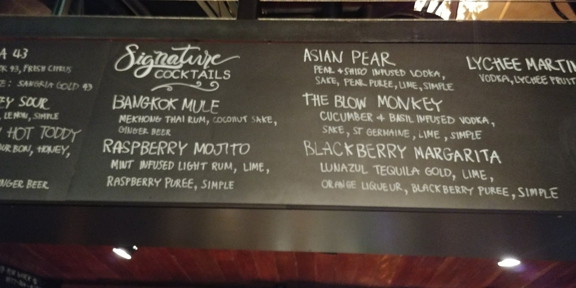 A 43
43, FRESH CITRUS
SANGRIA GOLD 43
EY SOUR
LEMON, SIMPLE
HOT TODDY
RBON, HONEY,
INGER BEER
Signature
COCKTAILS
BANGKOK MULE
MEKHONG THAI RUM, COCONUT SAKE,
GINGER BEER
RASPBERRY MOJITO
MINT INFUSED LIGHT RUM, LIME,
RASPBERRY PUREE, SIMPLE
ASIAN PEAR
PEAR + SHISO INFUSED VODKA,
SAKE, PEAR PUREE, LIME, SIMPLE
THE BLOW MONKEY
CUCUMBER & BASIL INFUSED VODKA,
SAKE, ST GERMAINE, LIME, SIMPLE
BLACKBERRY MARGARITA
LUNAZUL TEQUILA GOLD, LIME,
ORANGE LIQUEUR, BLACKBERRY PUREE, SIMPLE
LYCHEE MARTIN
VODKA, LYCHEE FRUIT